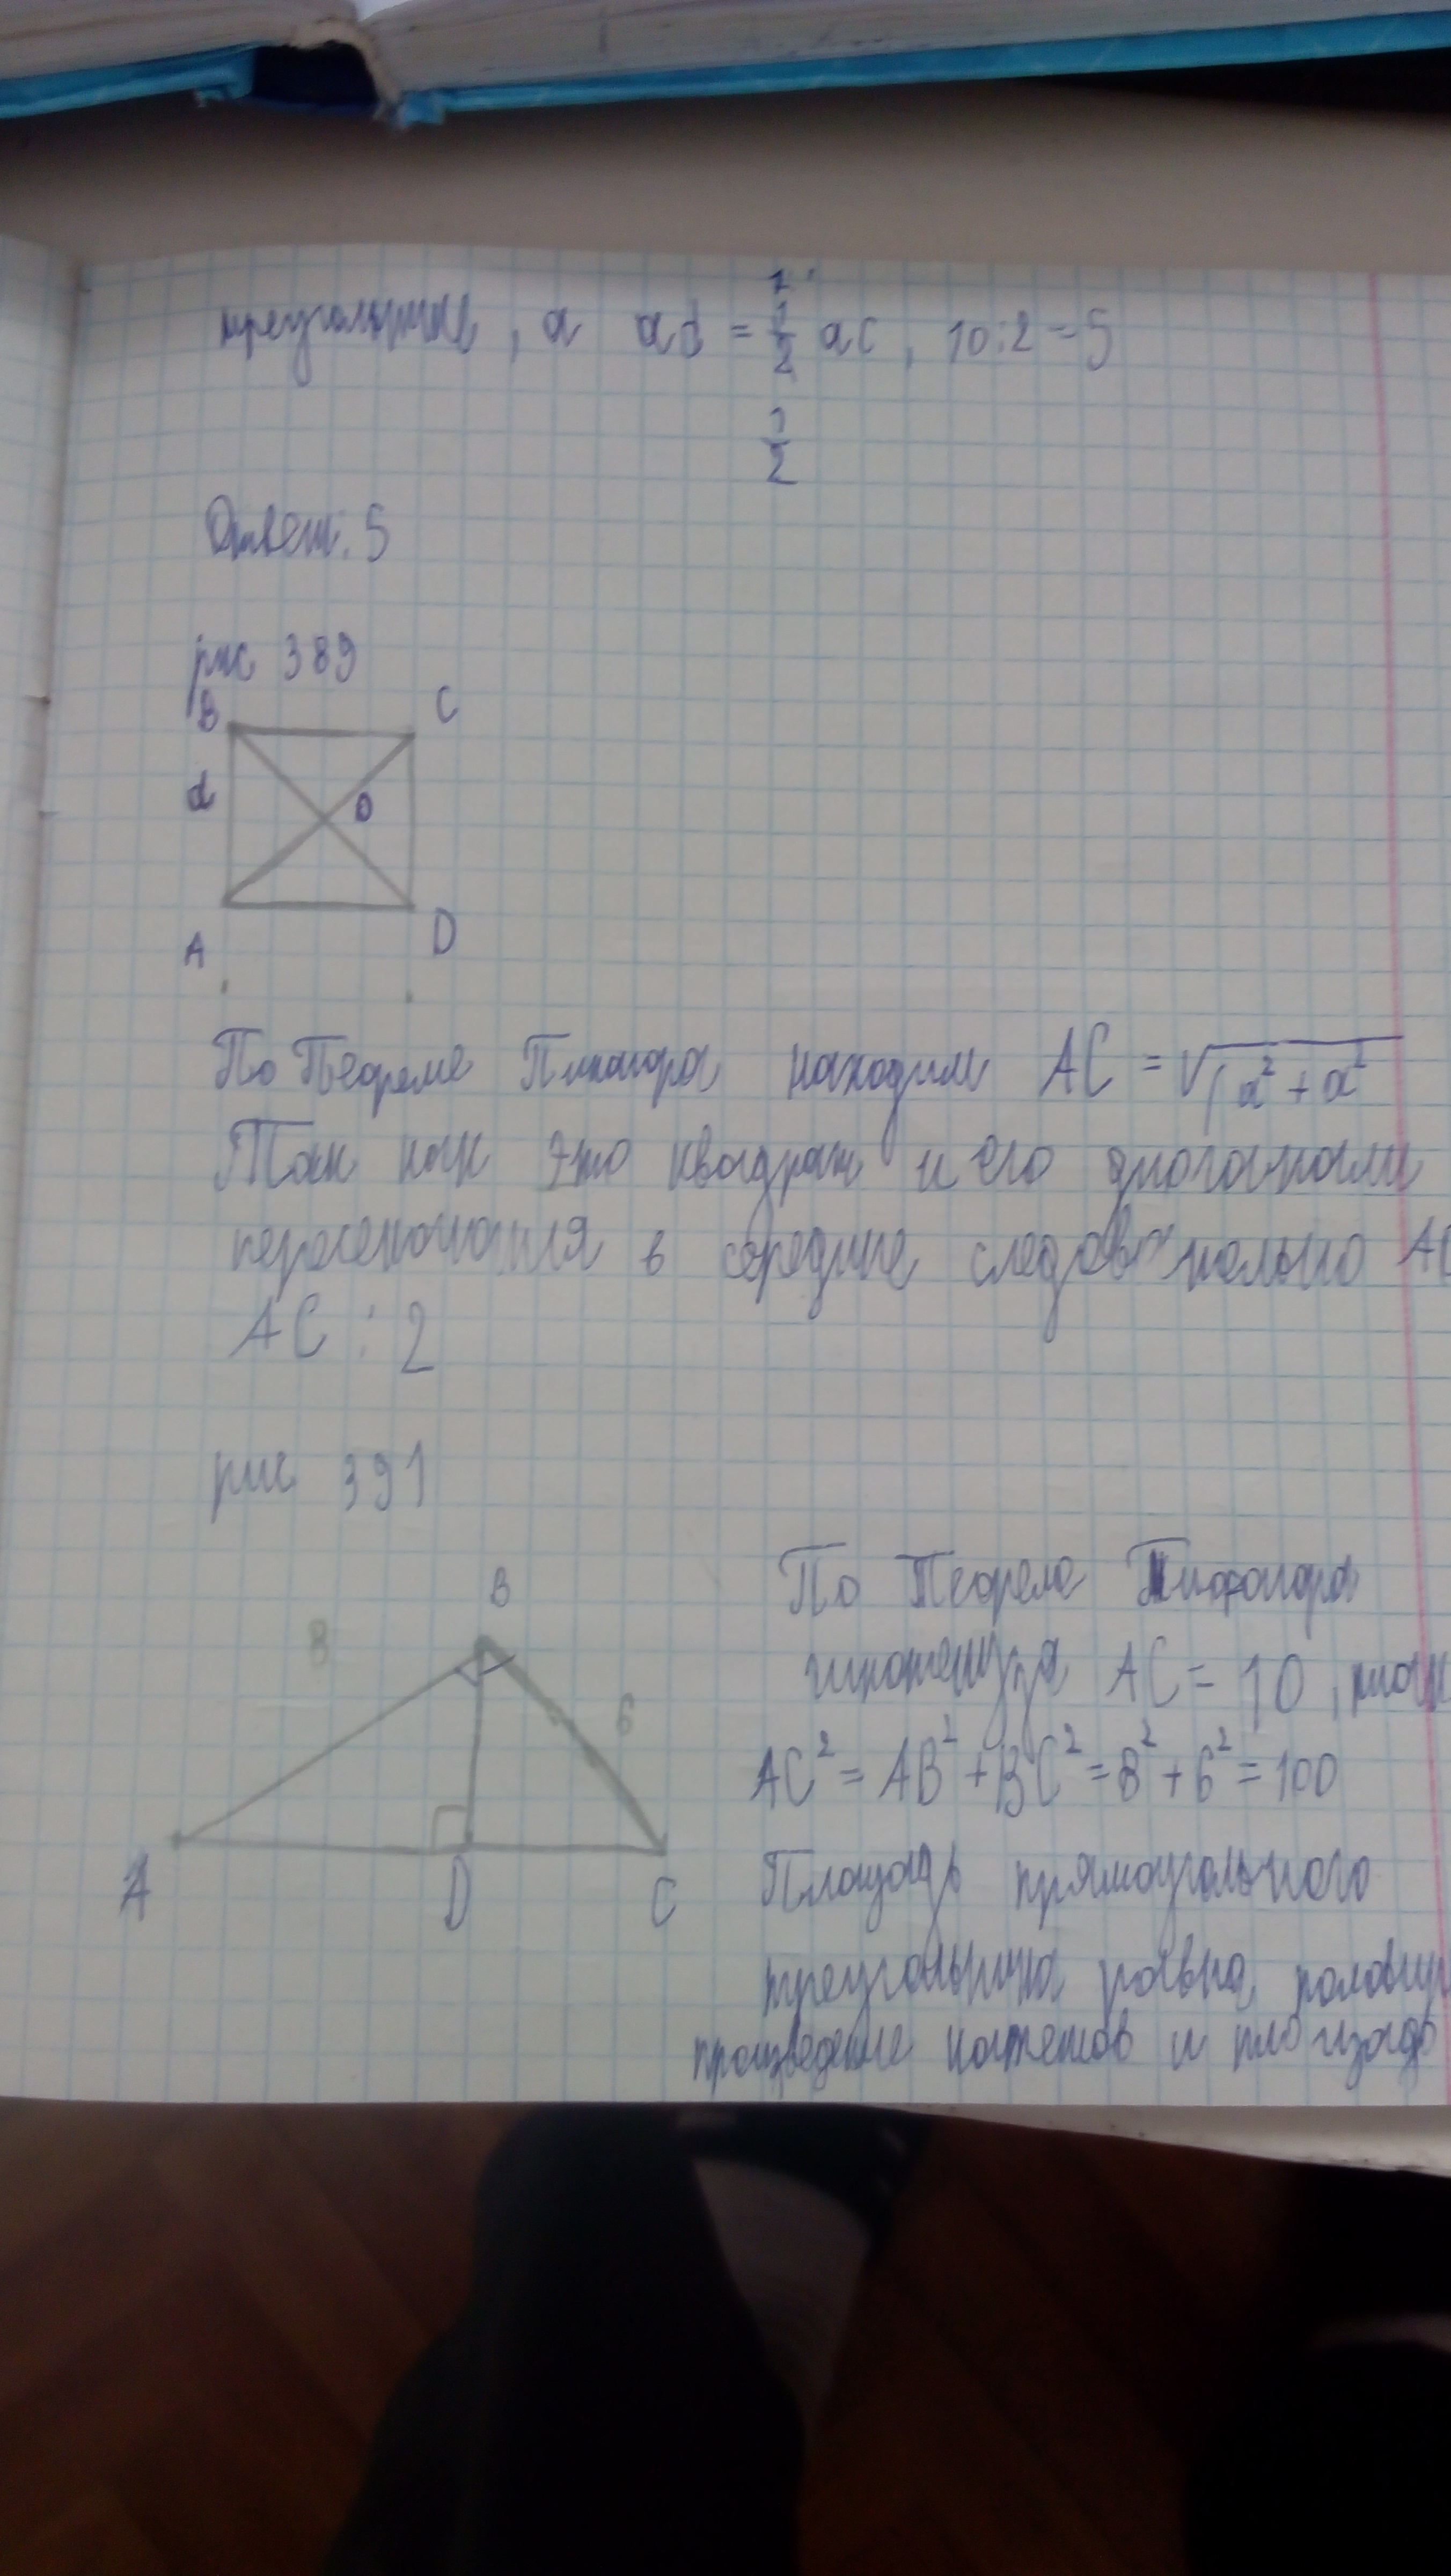 треугольнике, а ad = 1/2 ac, 10:2=5
1/2
Ответ: 5
рис 389
B C
d O
A D
По Теореме Пифагора находим AC = √a² + a²
Так как это квадрат и его диагонали
пересекаются в середине следовательно
AC : 2
рис 391
B
8
6
A D C
По Теореме Пифагора
гипотенуза AC = 10,
AC² = AB² + BC² = 8² + 6² = 100
Площадь прямоугольного
треугольника равна
произведение катетов и площадь